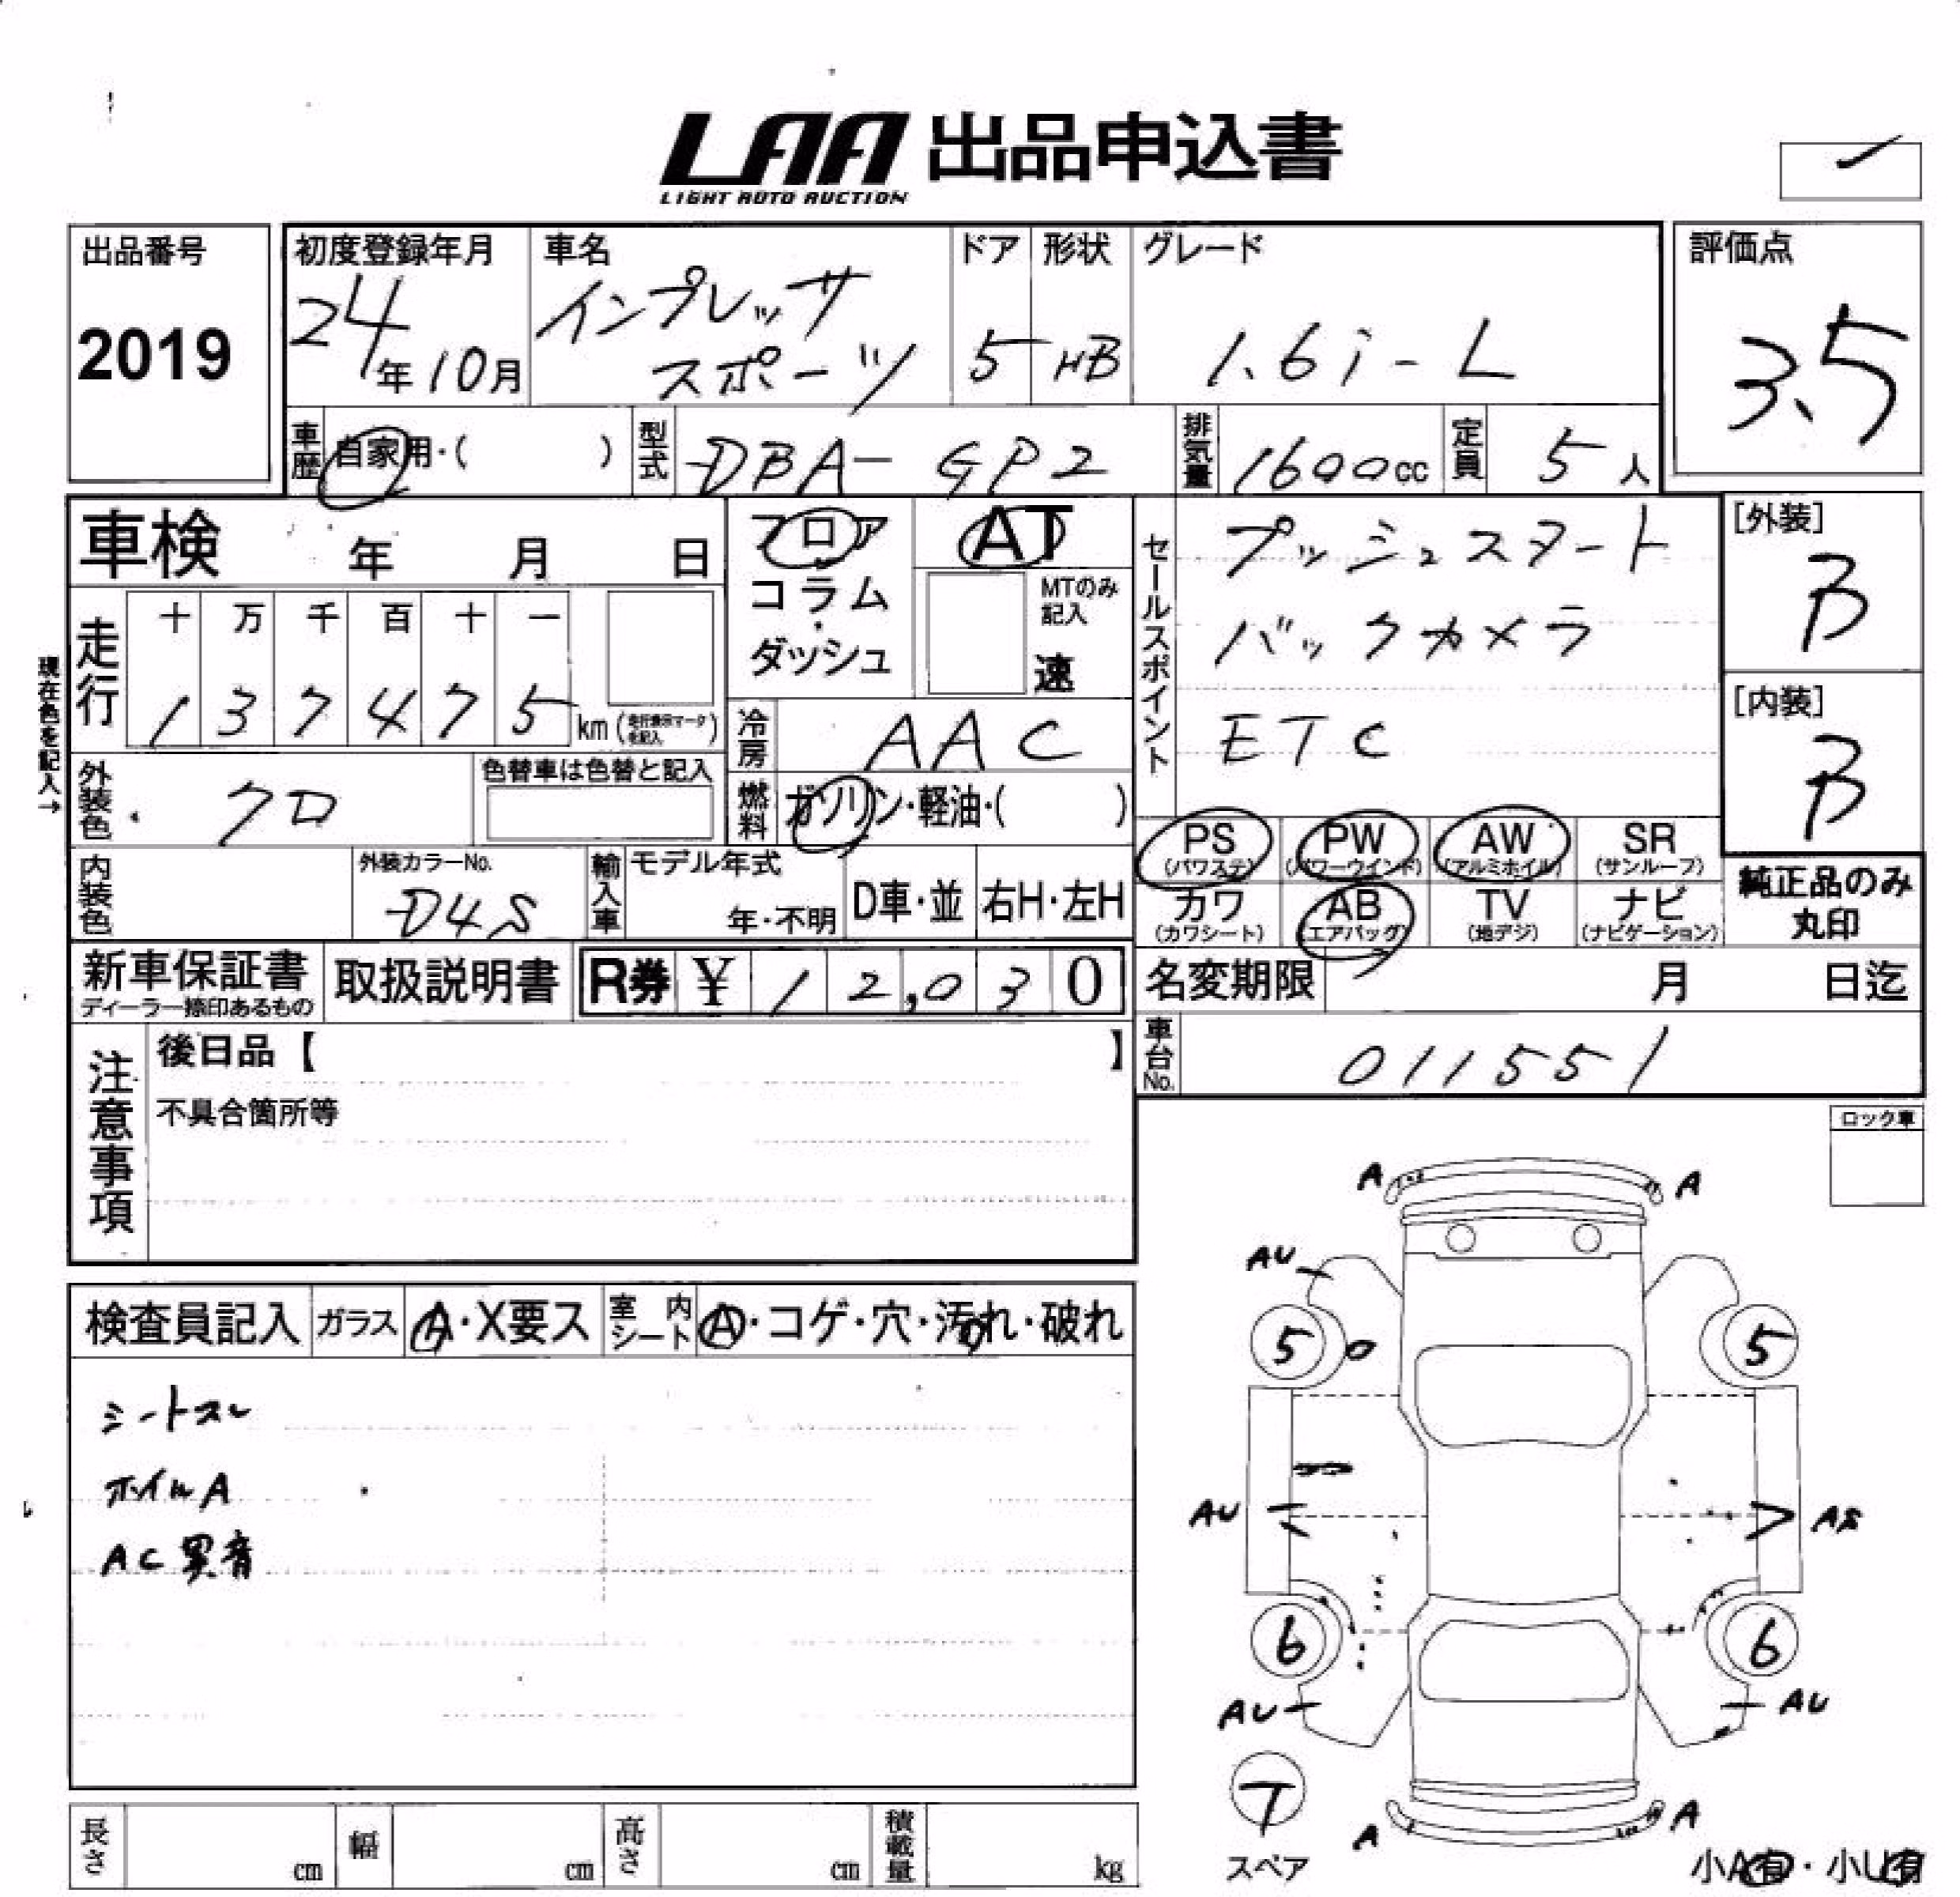 LAA 出品申込書
LIGHT AUTO AUCTION
出品番号
2019
初度登録年月
24年10月
車名
インプレッサ
スポーツ
ドア
5
形状
HB
グレード
1.6i-L
評価点
3.5
車歴
自家用・( )
型式
DBA-GP2
排気量
1600cc
定員
5人
車検 年 月 日
フロア
コラム
・
ダッシュ
AT
MTのみ
記入
速
セールスポイント
プッシュスタート
バックカメラ
ETC
[外装]
B
[内装]
B
現在色を記入→
走行
十 万 千 百 十 一
1 3 7 4 7 5 km (走行表示マークを記入)
冷房
AAC
外装色
クロ
色替車は色替と記入
燃料
ガソリン・軽油・( )
PS (パワステ)
PW (パワーウインド)
AW (アルミホイル)
SR (サンルーフ)
カワ (カワシート)
AB (エアバッグ)
TV (地デジ)
ナビ (ナビゲーション)
純正品のみ
丸印
内装色
外装カラーNo.
D4S
輸入車
モデル年式
年・不明
D車・並
右H・左H
新車保証書
ディーラー捺印あるもの
取扱説明書
R券 ¥ 1 2,0 3 0
名変期限 月 日迄
車台No.
011551
注意事項
後日品【 】
不具合箇所等
ロック車
検査員記入
ガラス
A・X要ス
室内シート
A・コゲ・穴・汚れ・破れ
シートスレ
ホイルA
AC異音
A A
AU
5 5
AU
AS
6 6
AU AU
T
スペア
A A
小A有・小U有
長さ cm
幅 cm
高さ cm
積載量 kg